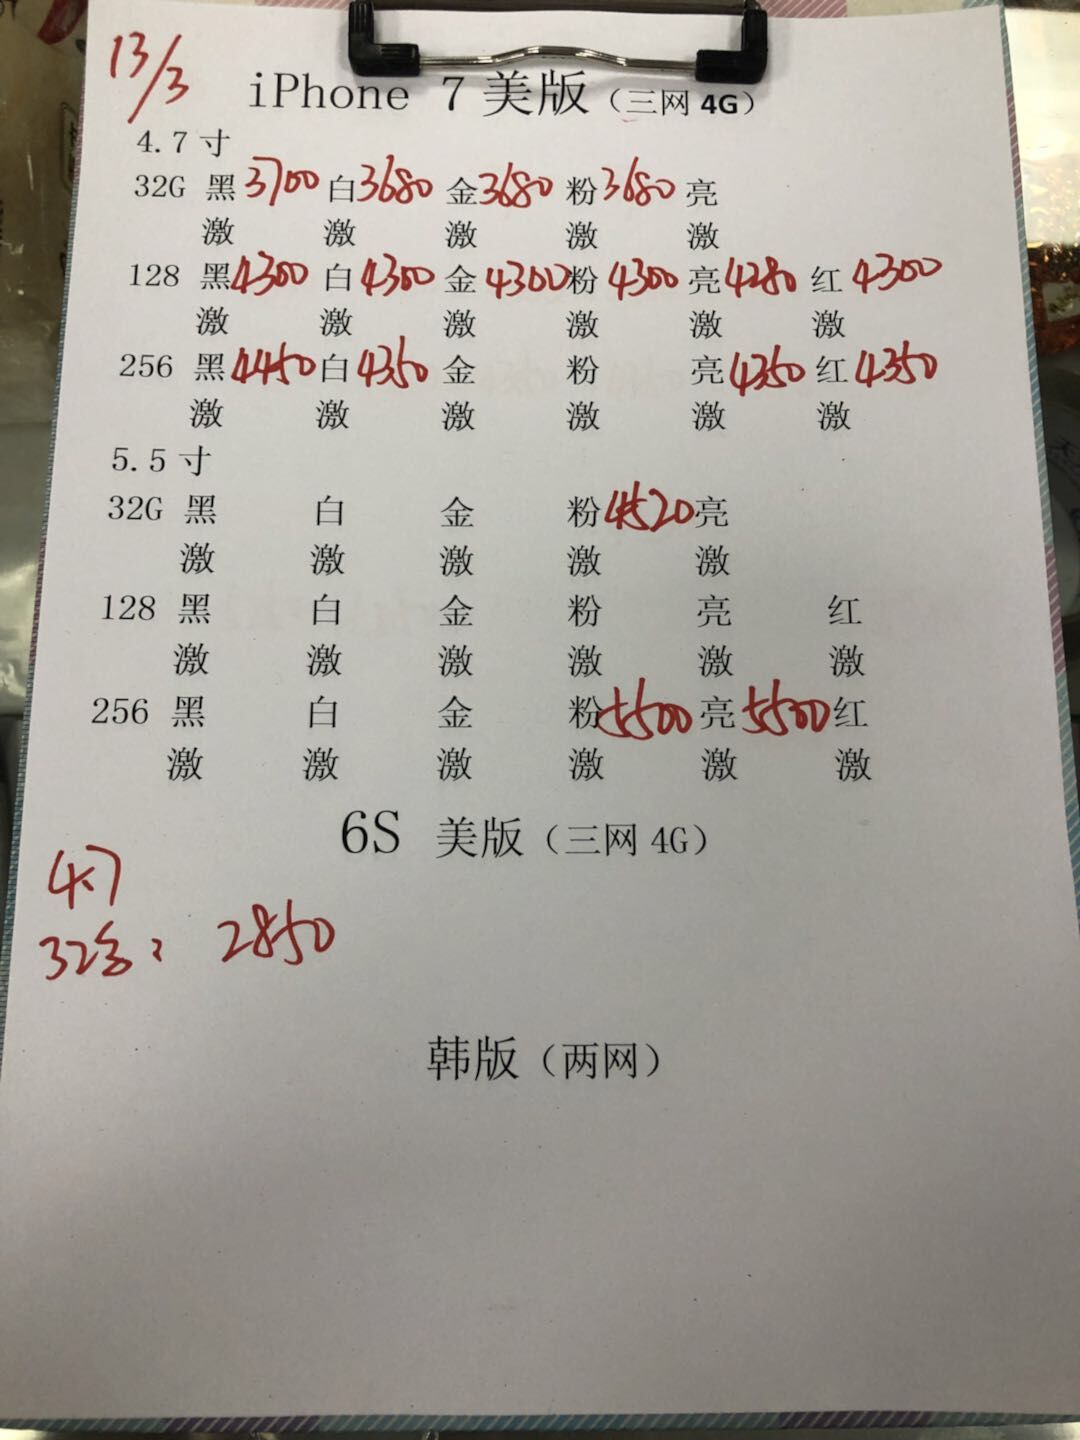 13/3
iPhone 7 美版（三网 4G）
4.7 寸
32G 黑 3700 白 3680 金 3680 粉 3680 亮
激 激 激 激 激
128 黑 4300 白 4300 金 4300 粉 4300 亮 4280 红 4300
激 激 激 激 激 激
256 黑 4450 白 4350 金 粉 亮 4350 红 4350
激 激 激 激 激 激
5.5 寸
32G 黑 白 金 粉 4520 亮
激 激 激 激 激
128 黑 白 金 粉 亮 红
激 激 激 激 激 激
256 黑 白 金 粉 5500 亮 5500 红
激 激 激 激 激 激
6S 美版（三网 4G）
4.7
32 2850
韩版（两网）